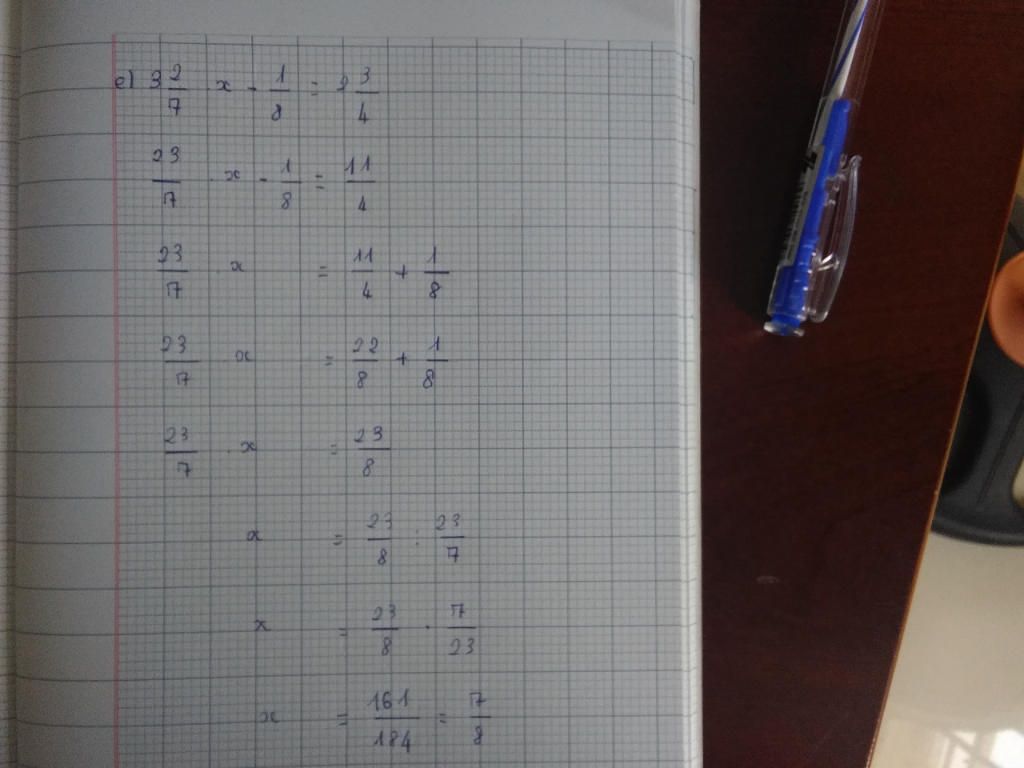 e) 3 2/7 . x - 1/8 = 2 3/4
23/7 . x - 1/8 = 11/4
23/7 . x = 11/4 + 1/8
23/7 . x = 22/8 + 1/8
23/7 . x = 23/8
x = 23/8 : 23/7
x = 23/8 . 7/23
x = 161/184 = 7/8